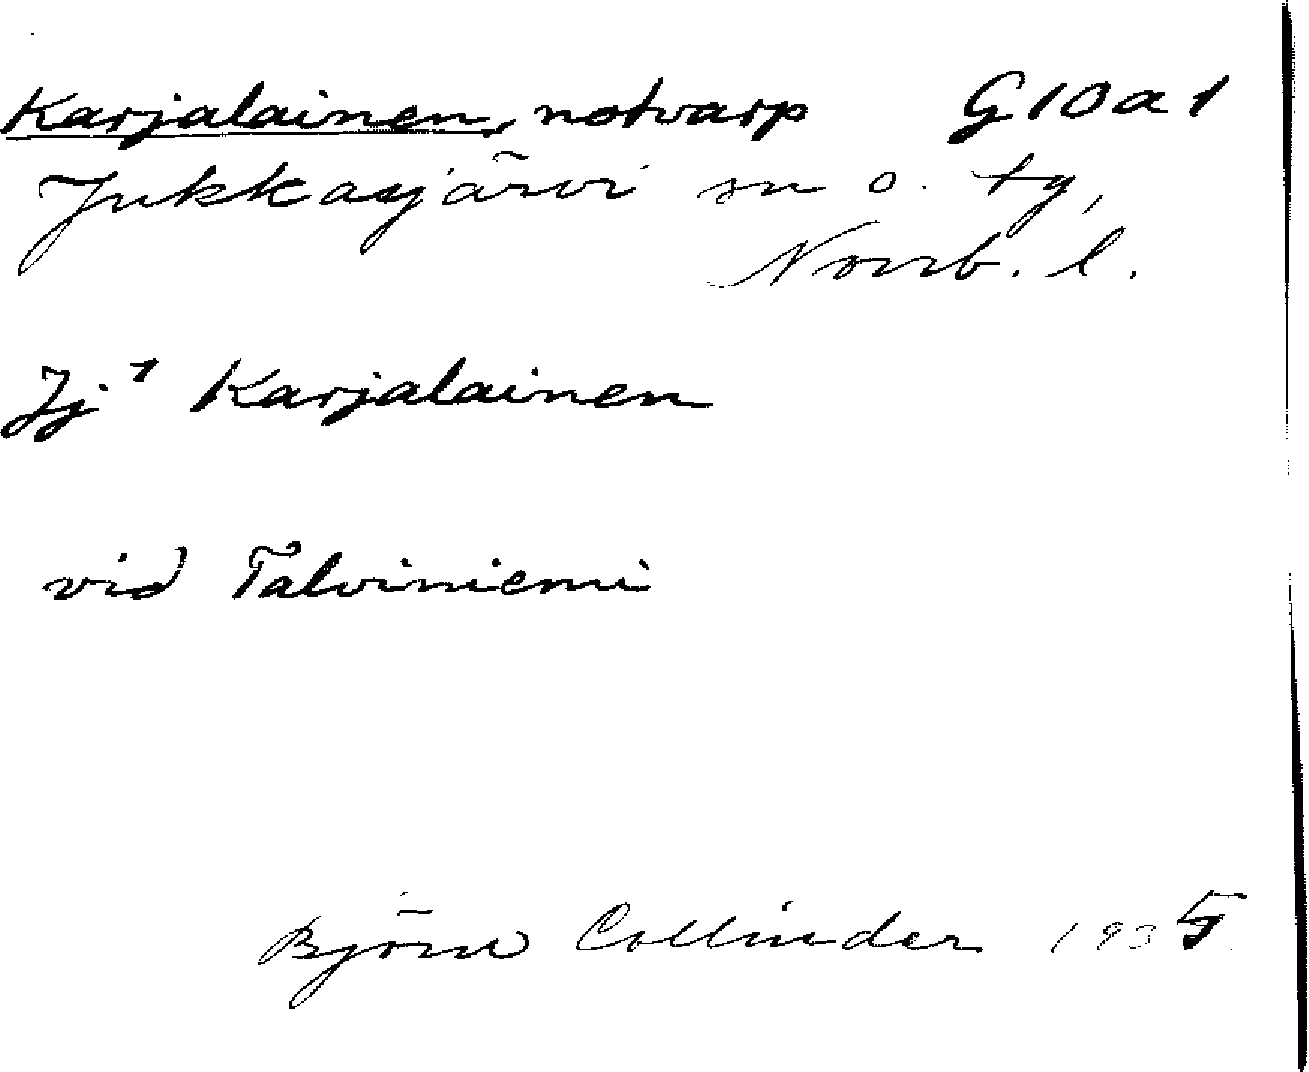 Karjalainen, notvarp G10a1
Jukkasjärvi sn o. tg,
Norrb. l.
Jj¹ Karjalainen
vid Talviniemi
Björn Collinder 1935